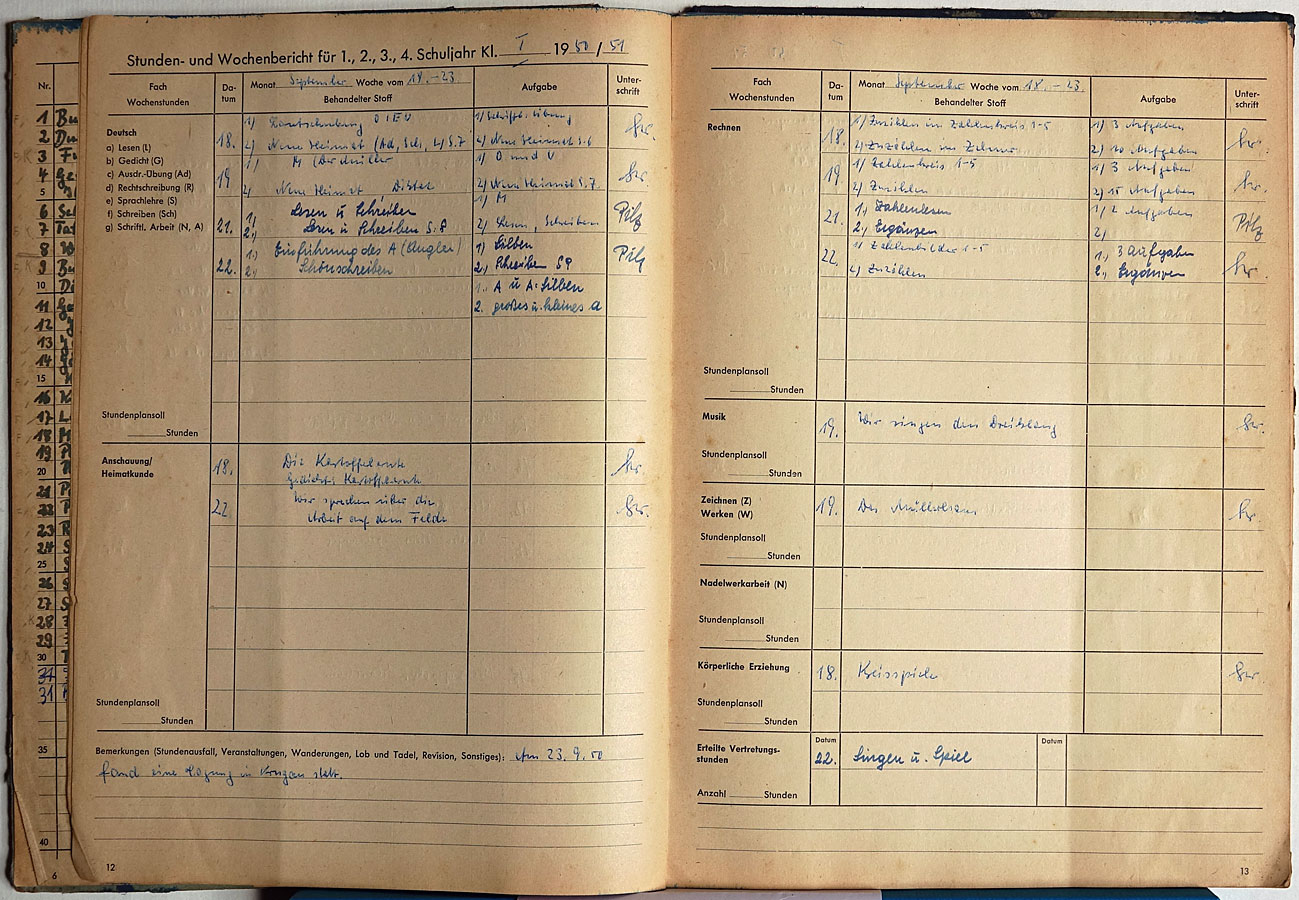 Stunden- und Wochenbericht für 1., 2., 3., 4. Schuljahr Kl. I 1950/51
Fach
Wochenstunden
Da-
tum
Monat September Woche vom 18.–23.
Behandelter Stoff
Aufgabe
Unter-
schrift
Deutsch
a) Lesen (L)
b) Gedicht (G)
c) Ausdr.-Übung (Ad)
d) Rechtschreibung (R)
e) Sprachlehre (S)
f) Schreiben (Sch)
g) Schriftl. Arbeit (N, A)
18.
1)
2) Neue Heimat (Ad, Sch, L) S. 7
1) Schriftl. Übung
2) Neue Heimat S. 6
19
1) M (Der Müller
2) Neue Heimat Diktat
1) O und U
2) Neue Heimat S. 7
21.
1) Lesen u Schreiben
2.) Lesen u Schreiben S. 8
1) M
2) Lesen, Schreiben
Pilz
22.
1.) Einführung des A (Angler)
2.) Schönschreiben
1) Silben
2.) Schreiben S 9
Pilz
1., A u A-Silben
2. großes u. kleines a
Stundenplansoll
Stunden
Anschauung/
Heimatkunde
18.
Die Kartoffelernte
Gedicht: Kartoffelernte
22
Wir sprechen über die
Arbeit auf dem Felde
Stundenplansoll
Stunden
Bemerkungen (Stundenausfall, Veranstaltungen, Wanderungen, Lob und Tadel, Revision, Sonstiges): Am 23. 9. 50
fand eine Tagung in statt.
12
Fach
Wochenstunden
Da-
tum
Monat September Woche vom 18.–23.
Behandelter Stoff
Aufgabe
Unter-
schrift
Rechnen
18.
1) Zuzählen im Zahlenkreis 1-5
2) Zuzählen im Zehner
1) 3 Aufgaben
2) 10 Aufgaben
19.
1) Zahlenkreis 1-5
2) Zuzählen
1) 3 Aufgaben
2) 15 Aufgaben
21.
1., Zahlenlesen
2., Ergänzen
1., 2 Aufgaben
2)
Pilz
22.
1) Zahlenbilder 1-5
2) Zuzählen
1., 3 Aufgaben
2., Ergänzen
Stundenplansoll
Stunden
Musik
19.
Wir singen den Dreiklang
Stundenplansoll
Stunden
Zeichnen (Z)
Werken (W)
19.
Stundenplansoll
Stunden
Nadelwerkarbeit (N)
Stundenplansoll
Stunden
Körperliche Erziehung
18.
Kreisspiele
Stundenplansoll
Stunden
Erteilte Vertretungs-
stunden
Datum
22.
Singen u. Spiel
Datum
Anzahl Stunden
13
Nr.
1
2
3
4
5
6
7
8
9
10
11
12
13
14
15
16
17
18
19
20
21
22
23
24
25
26
27
28
29
30
31
31
35
40
6